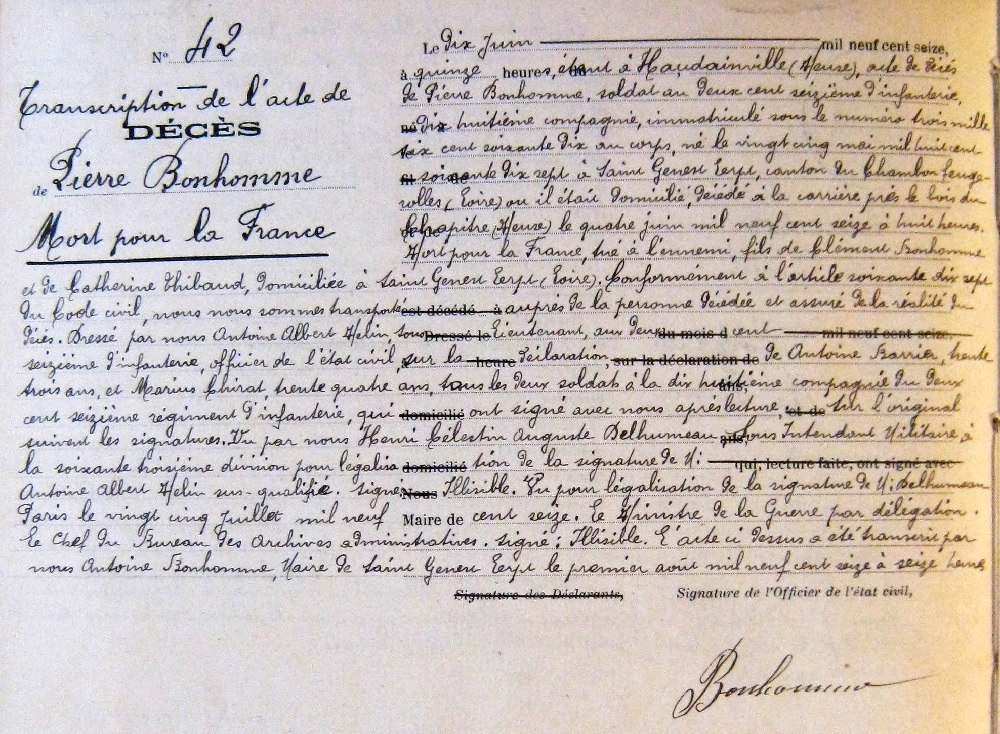 N° 42
Transcription de l'acte de
DÉCÈS
de Pierre Bonhomme
Mort pour la France
Le dix Juin mil neuf cent seize,
à quinze heures, étant à Haudainville (Meuse), acte de décés
de Pierre Bonhomme, soldat au deux cent seizième d'infanterie,
né dix huitième compagnie, immatriculé sous le numéro trois mille
six cent soixante dix au corps, né le vingt cinq mai mil huit cent
soixante dix sept à Saint Genest Lerpt, canton du Chambon feuge-
rolles (Loire) ou il était domicilié, décédé à la carrière près le bois du
Chapitre (Meuse) le quatre juin mil neuf cent seize à huit heures.
Mort pour la France tué à l'ennemi, fils de Clément Bonhomme
et de Catherine Thibaud, domiciliée à Saint Genest Lerpt (Loire). Conformement à l'article soixante dix sept
du Code civil, nous nous sommes transporté est décédé à auprès de la personne décédée et assuré de la réalité du
décés. Dressé par nous Antoine Albert Helin, sous Dressé le Lieutenant, aux deux du mois d cent mil neuf cent seize
seizième d'infanterie, officier de l'état civil, sur la heure déclaration, sur la déclaration de de Antoine Barrier, trente
trois ans, et Marius Chirat, trente quatre ans, tous les deux soldats à la dix huitième ans, compagnie du deux
cent seizième régiment d'infanterie, qui domicilié ont signé avec nous après lecture, et de Sur l'original
suivent les signatures. Vu par nous Henri Célestin Auguste Delhumeau ans, Sous Intendant Militaire à
la soixante troisième division pour légalisa domicilié tion de la signature de M: qui, lecture faite, ont signé avec
Antoine Albert Helin sus-qualifié. signé, Nous Illisible. Vu pour légalisation de la signature de M: Delhumeau
Paris le vingt cinq juillet mil neuf Maire de cent seize. Le Ministre de la Guerre par délégation.
Le Chef du Bureau des Archives administratives. signé: Illisible. L'acte ci dessus a été transcrit par
nous Antoine Bonhomme, Maire de Saint Genest Lerpt le premier août mil neuf cent seize à seize heures
Signature des Déclarants, Signature de l'Officier de l'état civil,
Bonhomme